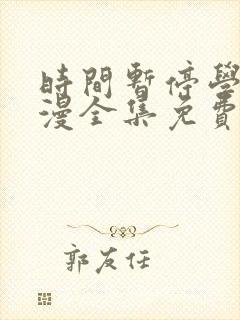 時間暫停學
漫全集免費
郭友任